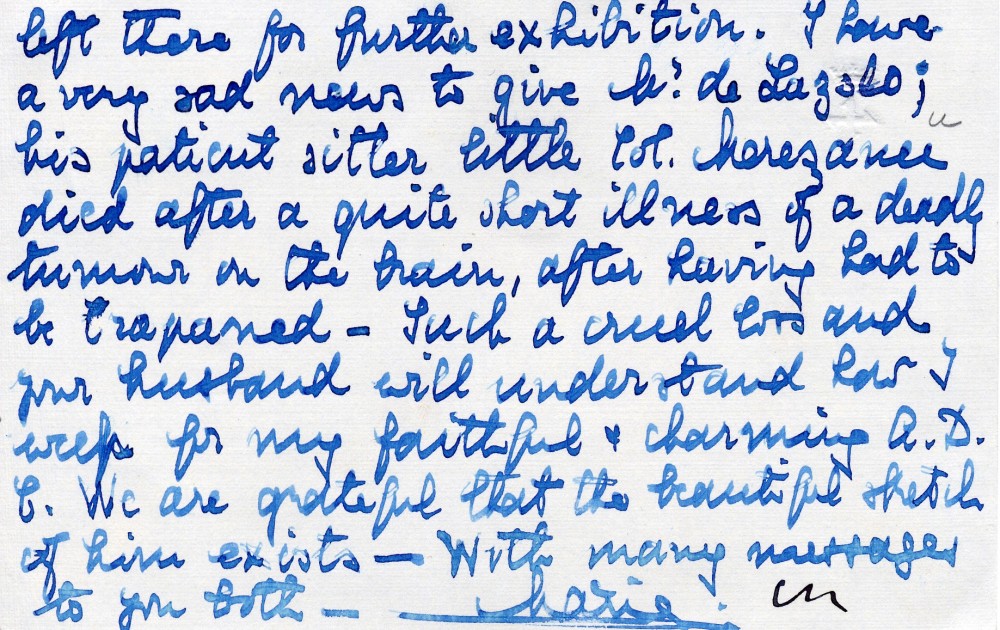 left there for further exhibition. I have
a very sad news to give Mr. de Lazslo;
his patient sitter little Col. Marezanu
died after a quite short illness of a deadly
tumour on the brain, after having had to
be trapaned – Such a cruel loss and
your husband will understand how I
weep for my faithful & charming A.D.
C. We are grateful that the beautiful sketch
of him exists – With many messages
to you both – Marie.